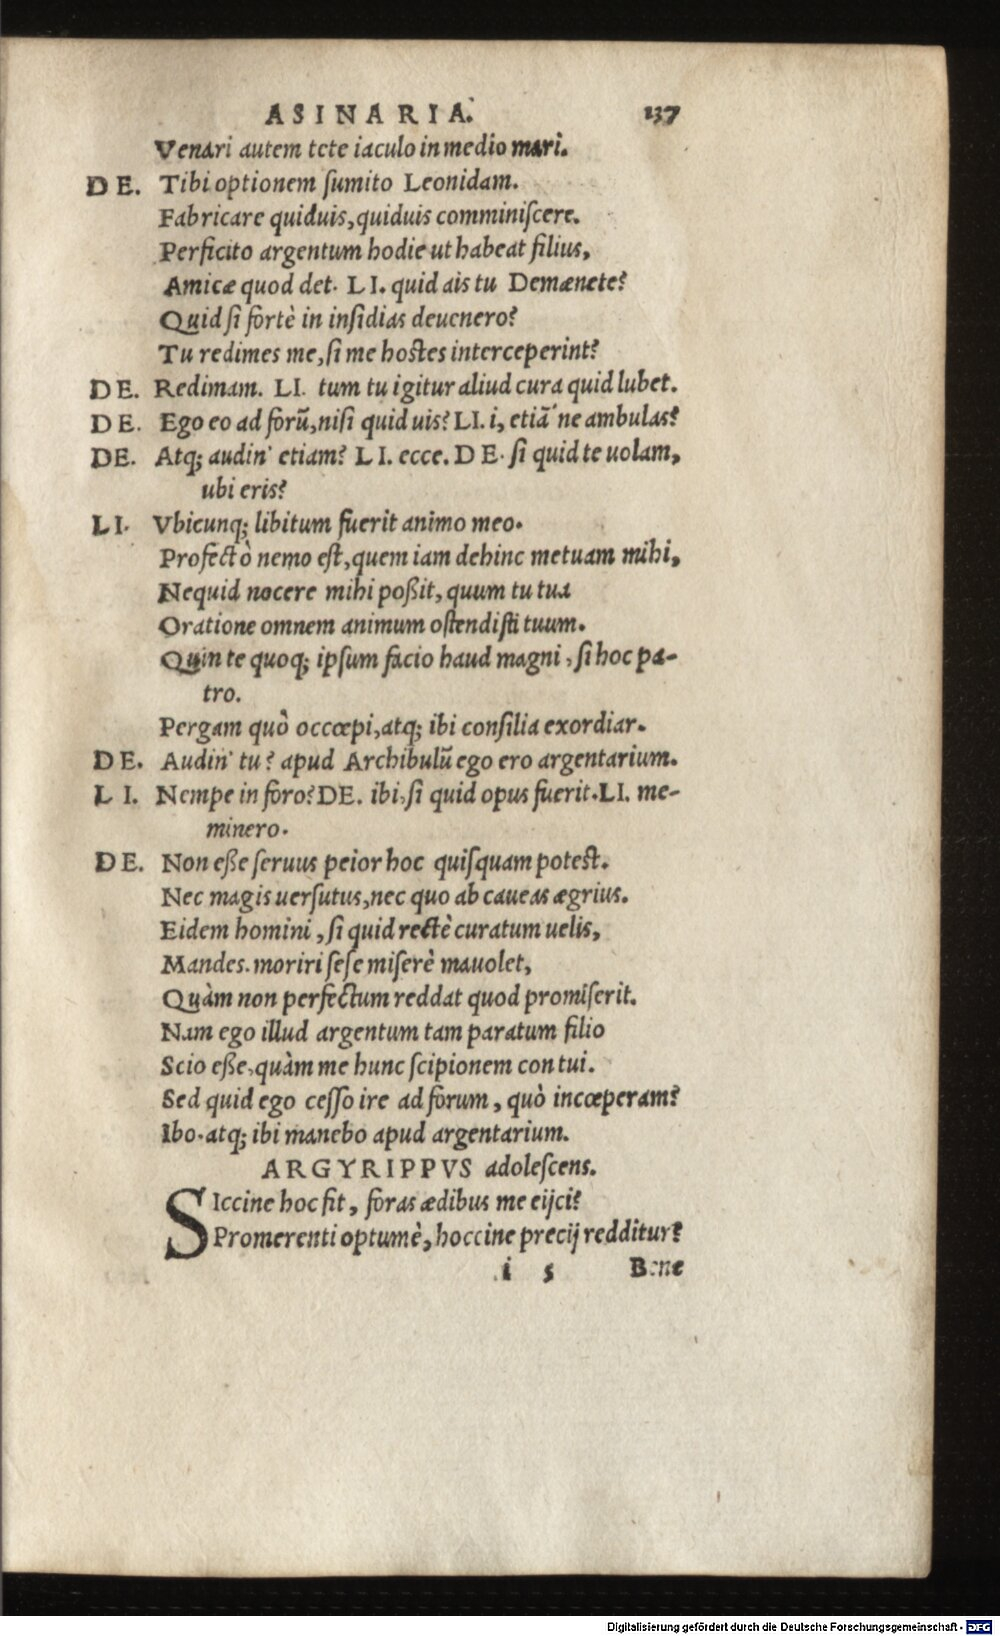 ASINARIA. 137
Venari autem tete iaculo in medio mari.
DE. Tibi optionem ſumito Leonidam.
Fabricare quiduis, quiduis comminiſcere.
Perficito argentum hodie ut habeat filius,
Amicæ quod det. LI. quid ais tu Demænete?
Quid ſi fortè in inſidias deuenero?
Tu redimes me, ſi me hostes interceperint?
DE. Redimam. LI. tum tu igitur aliud cura quid lubet.
DE. Ego eo ad forũ, niſi quid uis? LI. i, etiã ne ambulas?
DE. Atq; audin' etiam? LI. ecce. DE. ſi quid te uolam,
ubi eris?
LI. Vbicunq; libitum fuerit animo meo.
Profectò nemo eſt, quem iam dehinc metuam mihi,
Nequid nocere mihi poßit, quum tu tua
Oratione omnem animum oſtendiſti tuum.
Quin te quoq; ipſum facio haud magni, ſi hoc pa-
tro.
Pergam quò occœpi, atq; ibi conſilia exordiar.
DE. Audin' tu? apud Archibulũ ego ero argentarium.
LI. Nempe in foro? DE. ibi, ſi quid opus fuerit. LI. me-
minero.
DE. Non eße ſeruus peior hoc quiſquam poteſt.
Nec magis uerſutus, nec quo ab caueas ægrius.
Eidem homini, ſi quid rectè curatum uelis,
Mandes. moriri ſeſe miſerè mauolet,
Quàm non perfectum reddat quod promiſerit.
Nam ego illud argentum tam paratum filio
Scio eße, quàm me hunc ſcipionem contui.
Sed quid ego ceſſo ire ad forum, quò incœperam?
Ibo. atq; ibi manebo apud argentarium.
ARGYRIPPVS adoleſcens.
SIccine hoc fit, foras ædibus me eijci?
Promerenti optumè, hoccine precij redditur?
i s Bene
Digitalisierung gefördert durch die Deutsche Forschungsgemeinschaft - DFG